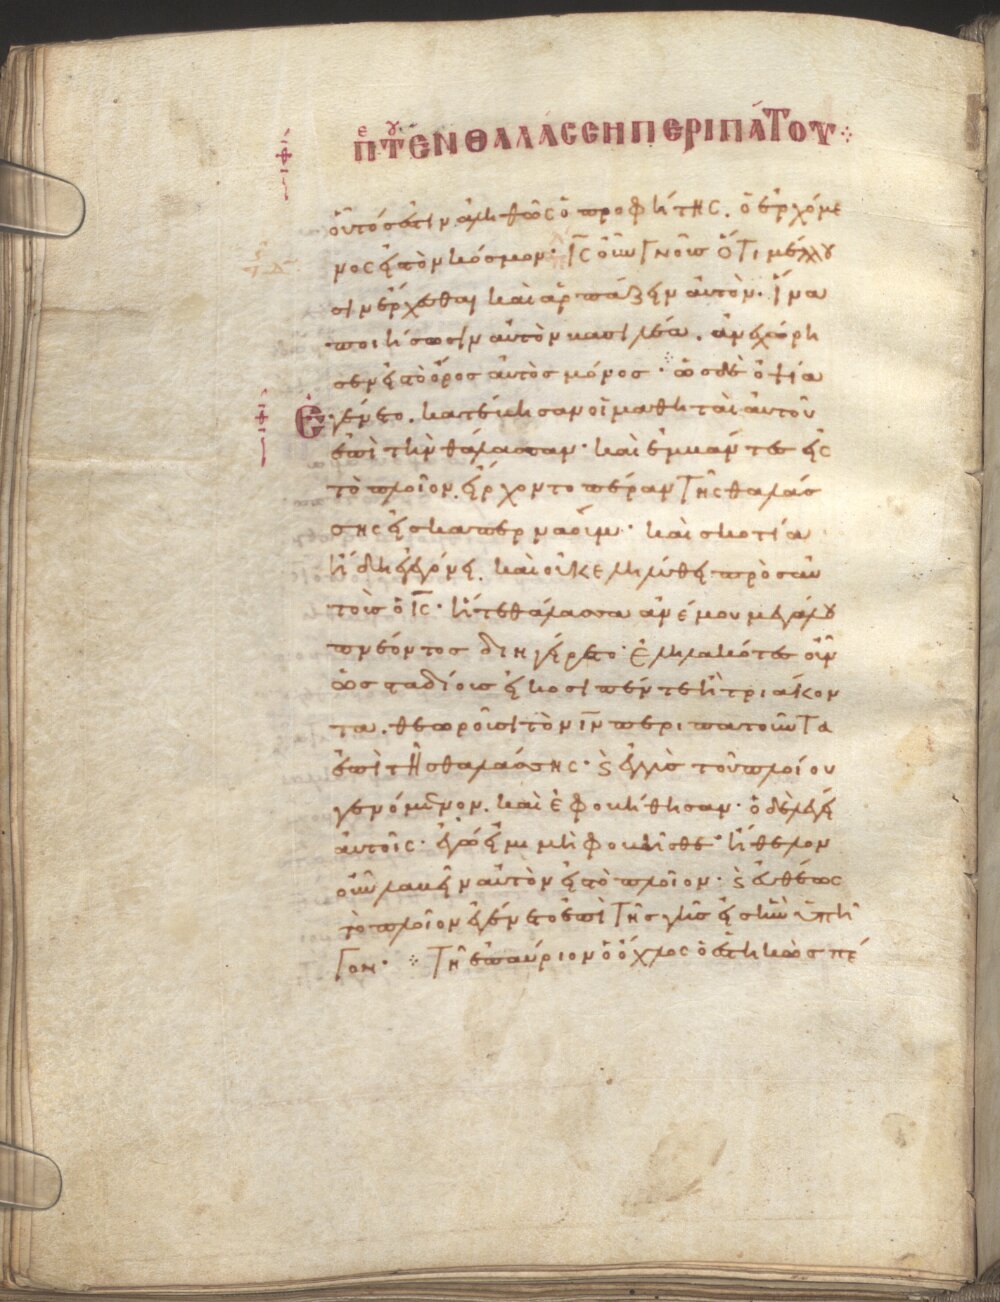 πε τοῦ ἐν θαλάσσῃ περιπάτου
οὗτός ἐστιν ἀληθῶς ὁ προφήτης. ὁ ἐρχόμε
νος εἰς τὸν κόσμον· ις οὖν γνοὺς ὅτι μέλλου
σιν ἔρχεσθαι καὶ ἁρπάζειν αὐτὸν· ἵνα
ποιήσωσιν αὐτὸν βασιλέα. ἀνεχώρη
σεν εἰς τὸ ὄρος αὐτὸς μόνος· ὡς δὲ ὀψία
ἐγένετο. κατέβησαν οἱ μαθηταὶ αὐτοῦ
ἐπὶ τὴν θάλασσαν· καὶ ἐμβάντες εἰς
τὸ πλοῖον. ἤρχοντο πέραν τῆς θαλάσ
σης εἰς καπερναούμ· καὶ σκοτία
ἤδη ἐγεγόνει. καὶ οὐκ ἐληλύθει πρὸς αὐ
τοὺς ὁ ις· ἥ τε θάλασσα ἀνέμου μεγάλου
πνέοντος διηγείρετο· ἐληλακότες οὖν
ὡς σταδίους εἴκοσι πέντε ἢ τριάκον
τα. θεωροῦσι τὸν ιν περιπατοῦντα
ἐπὶ τῆς θαλάσσης· ϗ ἐγγὺς τοῦ πλοίου
γενόμενον. καὶ ἐφοβήθησαν· ὁ δὲ λέγει
αὐτοῖς· ἐγώ εἰμι μὴ φοβεῖσθε· ἤθελον
οὖν λαβεῖν αὐτὸν εἰς τὸ πλοῖον· ϗ εὐθέως
τὸ πλοῖον ἐγένετο ἐπὶ τῆς γῆς εἰς ἣν ὑπῆ
γον· τῇ ἐπαύριον ὁ ὄχλος ὁ ἑστηκὼς πέ